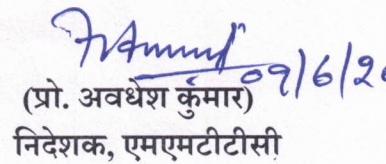 09/6/20
(प्रो. अवधेश कुमार)
निदेशक, एमएमटीटीसी